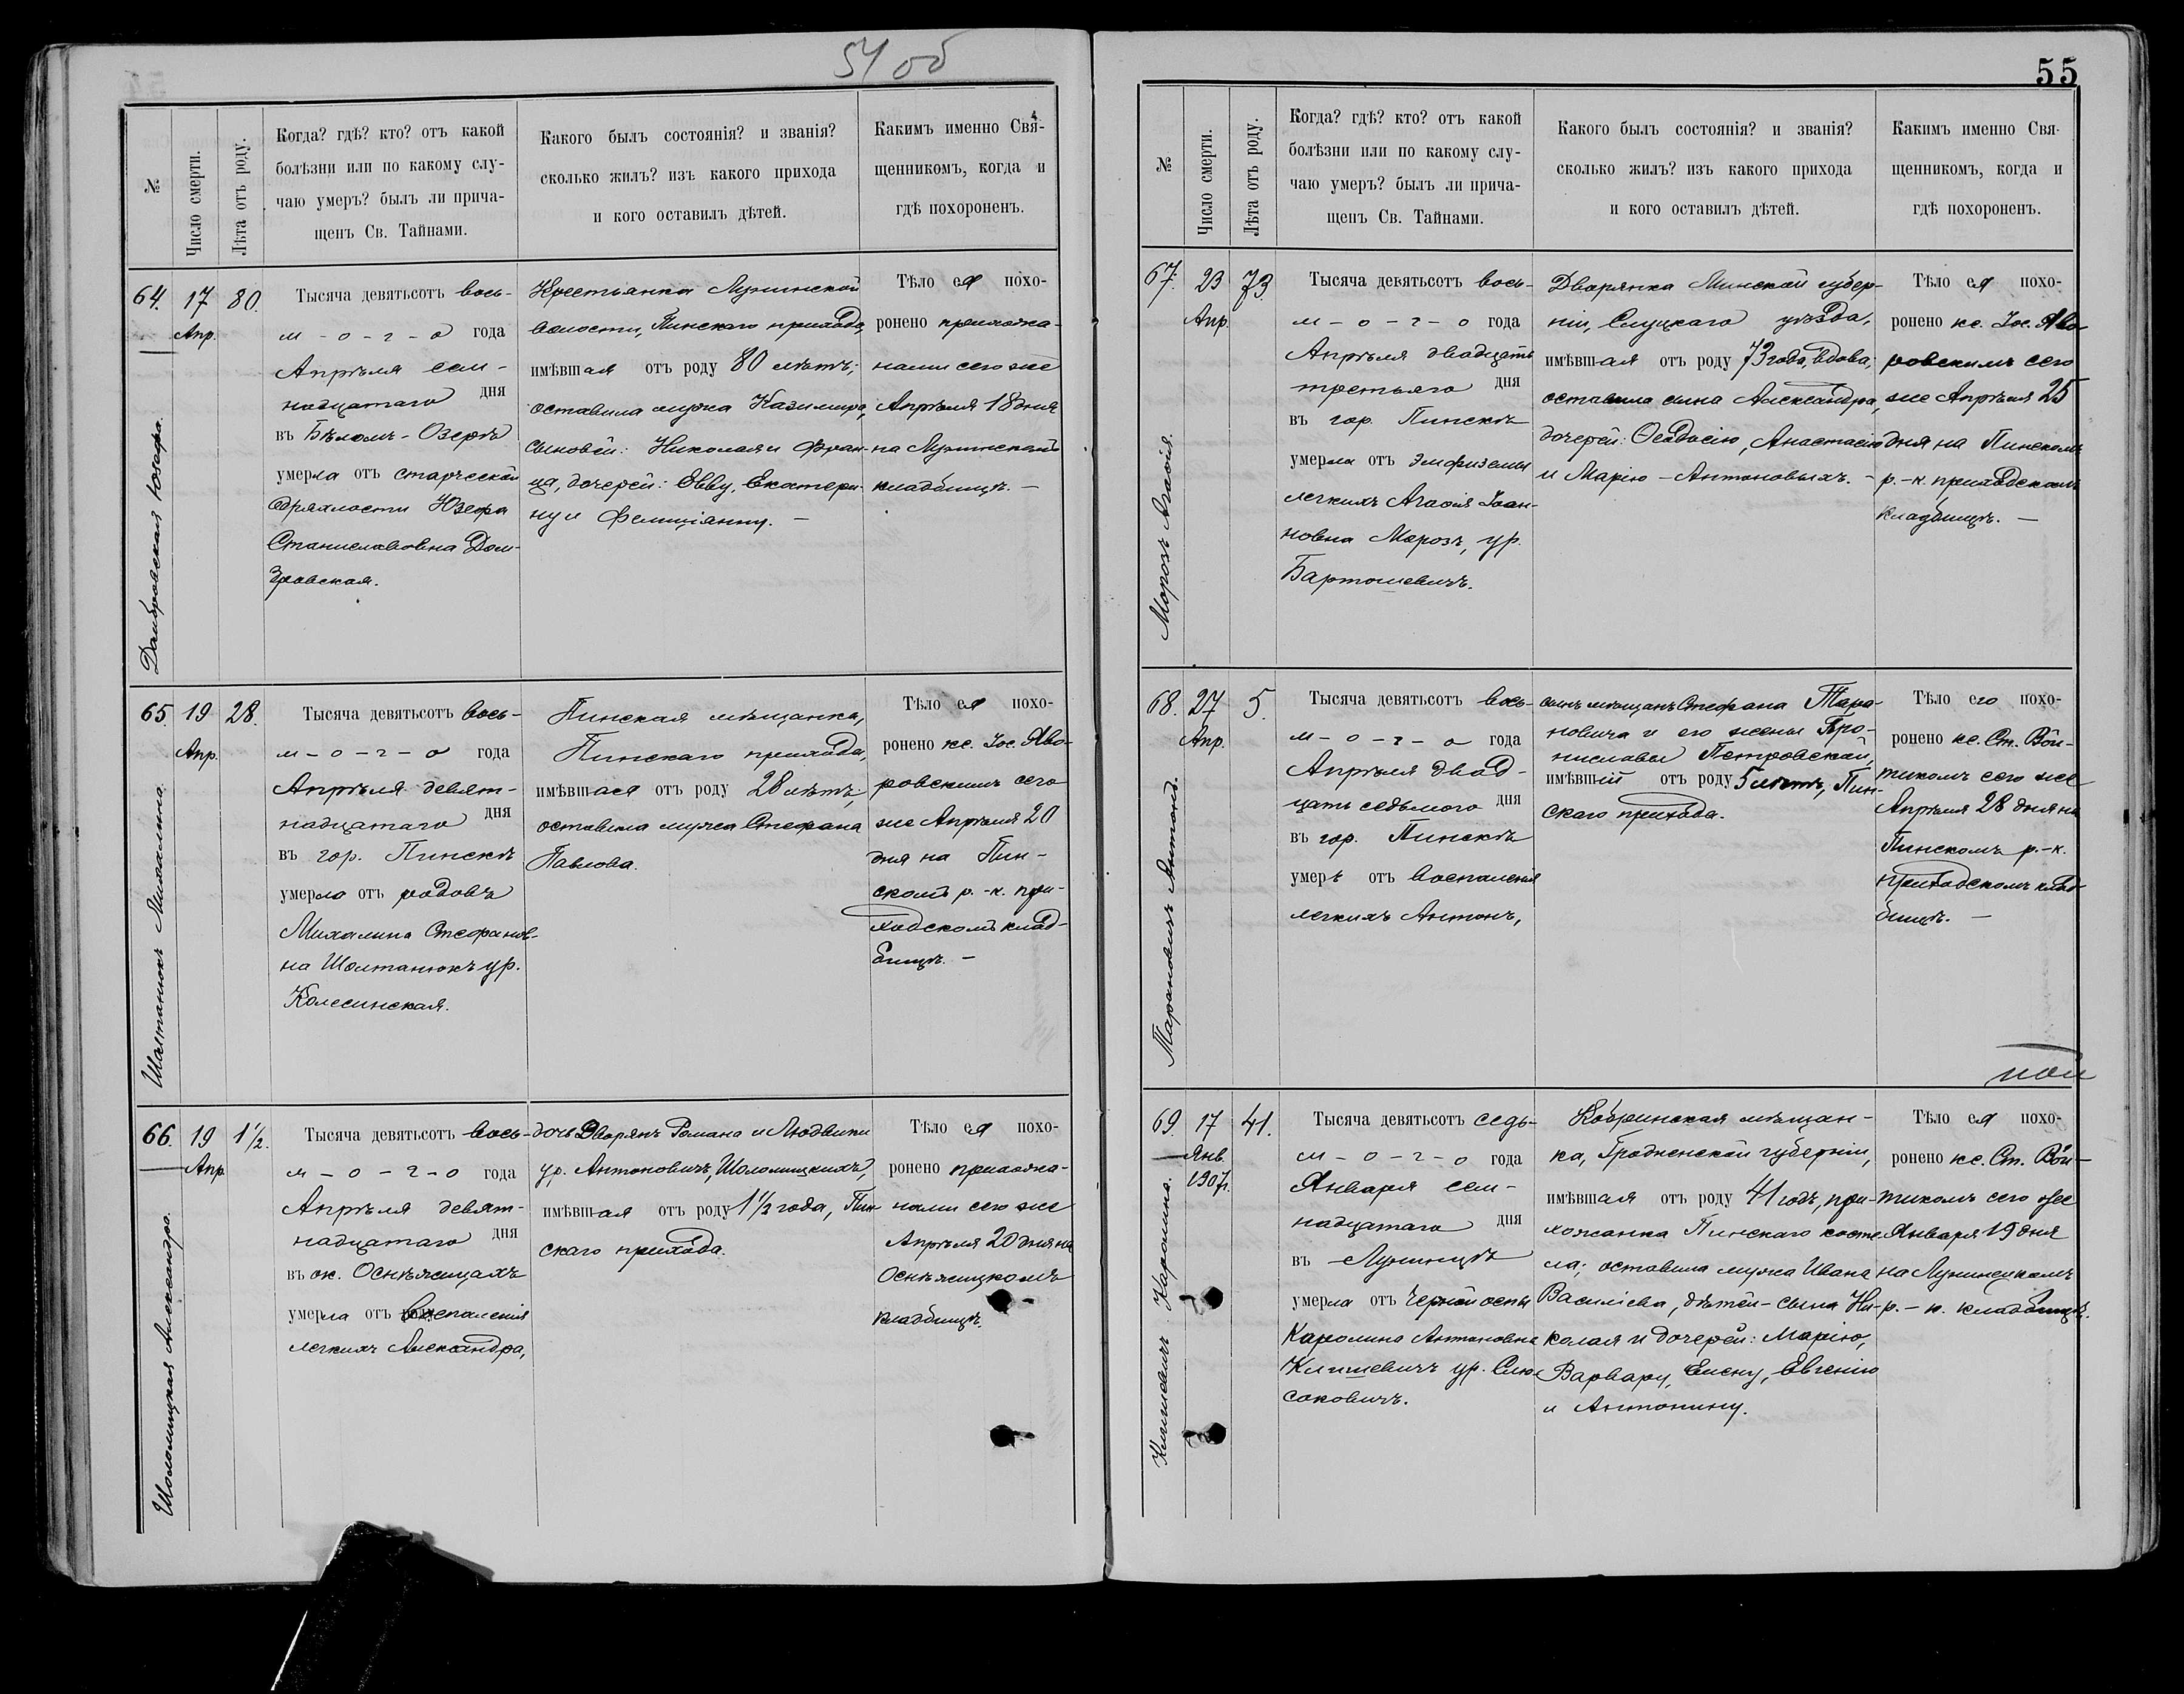 54 об
№
Число смерти.
Лѣта отъ роду.
Когда? гдѣ? кто? отъ какой
болѣзни или по какому слу-
чаю умеръ? былъ ли прича-
щенъ Св. Тайнами.
Какого былъ состоянія? и званія?
сколько жилъ? изъ какого прихода
и кого оставилъ дѣтей.
Какимъ именно Свя-
щенникомъ, когда и
гдѣ похороненъ.
64.
Домбровская Юзефа.
17
Апр.
80.
Тысяча девятьсотъ вось-
м - о - г - о года
Апрѣля сем-
надцатаго дня
въ Бѣломъ-Озерѣ
умерла отъ старческой
дряхлости Юзефа
Станиславовна Дом-
бровская.
Крестьянка Лунинской
волости, Пинскаго прихода,
имѣвшая отъ роду 80 лѣтъ;
оставила мужа Казимира,
сыновей: Николая и Фран-
ца, дочерей: Евву, Екатери-
ну и Фелиціянну. —
Тѣло ея похо-
ронено прихожа-
нами сего же
Апрѣля 18 дня
на Лунинскомъ
кладбищѣ. —
65.
Шолтанюкъ Михалина.
19
Апр.
28.
Тысяча девятьсотъ вось-
м - о - г - о года
Апрѣля девят-
надцатаго дня
въ гор. Пинскѣ
умерла отъ родовъ
Михалина Стефанов-
на Шолтанюкъ ур.
Колесинская.
Пинская мѣщанка,
Пинскаго прихода,
имѣвшая отъ роду 28 лѣтъ;
оставила мужа Стефана
Павлова.
Тѣло ея похо-
ронено кс. Іос. Яво-
ровскимъ сего
же Апрѣля 20
дня на Пин-
скомъ р.-к. при-
ходскомъ клад-
бищѣ. —
66.
Шоломицкая Александра.
19
Апр.
1½.
Тысяча девятьсотъ вось-
м - о - г - о года
Апрѣля девят-
надцатаго дня
въ ок. Оснѣжицахъ
умерла отъ воспаленія
легкихъ Александра,
дочь Дворянъ Романа и Людвики
ур. Антоновичъ, Шоломицкихъ,
имѣвшая отъ роду 1½ года, Пин-
скаго прихода.
Тѣло ея похо-
ронено прихожа-
нами сего же
Апрѣля 20 дня на
Оснѣжицкомъ
кладбищѣ. —
55
№
Число смерти.
Лѣта отъ роду.
Когда? гдѣ? кто? отъ какой
болѣзни или по какому слу-
чаю умеръ? былъ ли прича-
щенъ Св. Тайнами.
Какого былъ состоянія? и званія?
сколько жилъ? изъ какого прихода
и кого оставилъ дѣтей.
Какимъ именно Свя-
щенникомъ, когда и
гдѣ похороненъ.
67.
Морозъ Агаѳія.
23
Апр.
73.
Тысяча девятьсотъ вось-
м - о - г - о года
Апрѣля двадцать
третьяго дня
въ гор. Пинскѣ
умерла отъ эмфиземы
легкихъ Агаѳія Іоан-
новна Морозъ, ур.
Бартошевичъ.
Дворянка Минской губер-
ніи, Слуцкаго уѣзда,
имѣвшая отъ роду 73 года, вдова;
оставила сына Александра,
дочерей: Ѳеодосію, Анастасію
и Марію - Антоновыхъ. -
Тѣло ея похо-
ронено кс. Іос. Яво-
ровскимъ сего
же Апрѣля 25
дня на Пинскомъ
р.-к. приходскомъ
кладбищѣ. —
68.
Тарановичъ Антонъ.
27
Апр.
5.
Тысяча девятьсотъ вось-
м - о - г - о года
Апрѣля двад-
цать седьмого дня
въ гор. Пинскѣ
умеръ отъ воспаленія
легкихъ Антонъ,
сынъ мѣщанъ Стефана Тара-
новича и его жены Бро-
ниславы Петровской,
имѣвшій отъ роду 5 лѣтъ, Пин-
скаго прихода.
Тѣло его похо-
ронено кс. Ст. Вой-
тикомъ сего же
Апрѣля 28 дня на
Пинскомъ р.-к.
приходскомъ клад-
бищѣ. —
69.
Климевичъ Каролина.
17
Янв.
1907 г.
41.
Тысяча девятьсотъ седь-
м - о - г - о года
Января сем-
надцатаго дня
въ Лунинцѣ
умерла отъ черной оспы
Каролина Антоновна
Климевичъ ур. Слю-
соковичъ.
Кобринская мѣщан-
ка, Гродненской губерніи,
имѣвшая отъ роду 41 годъ, при-
хожанка Пинскаго косте-
ла; оставила мужа Ивана
Василіева, дѣтей - сына Ни-
колая и дочерей: Марію,
Варвару, Елену, Евгенію
и Антонину.
Тѣло ея похо-
ронено кс. Ст. Вой-
тикомъ сего же
Января 19 дня
на Лунинецкомъ
р.-к. кладбищѣ.